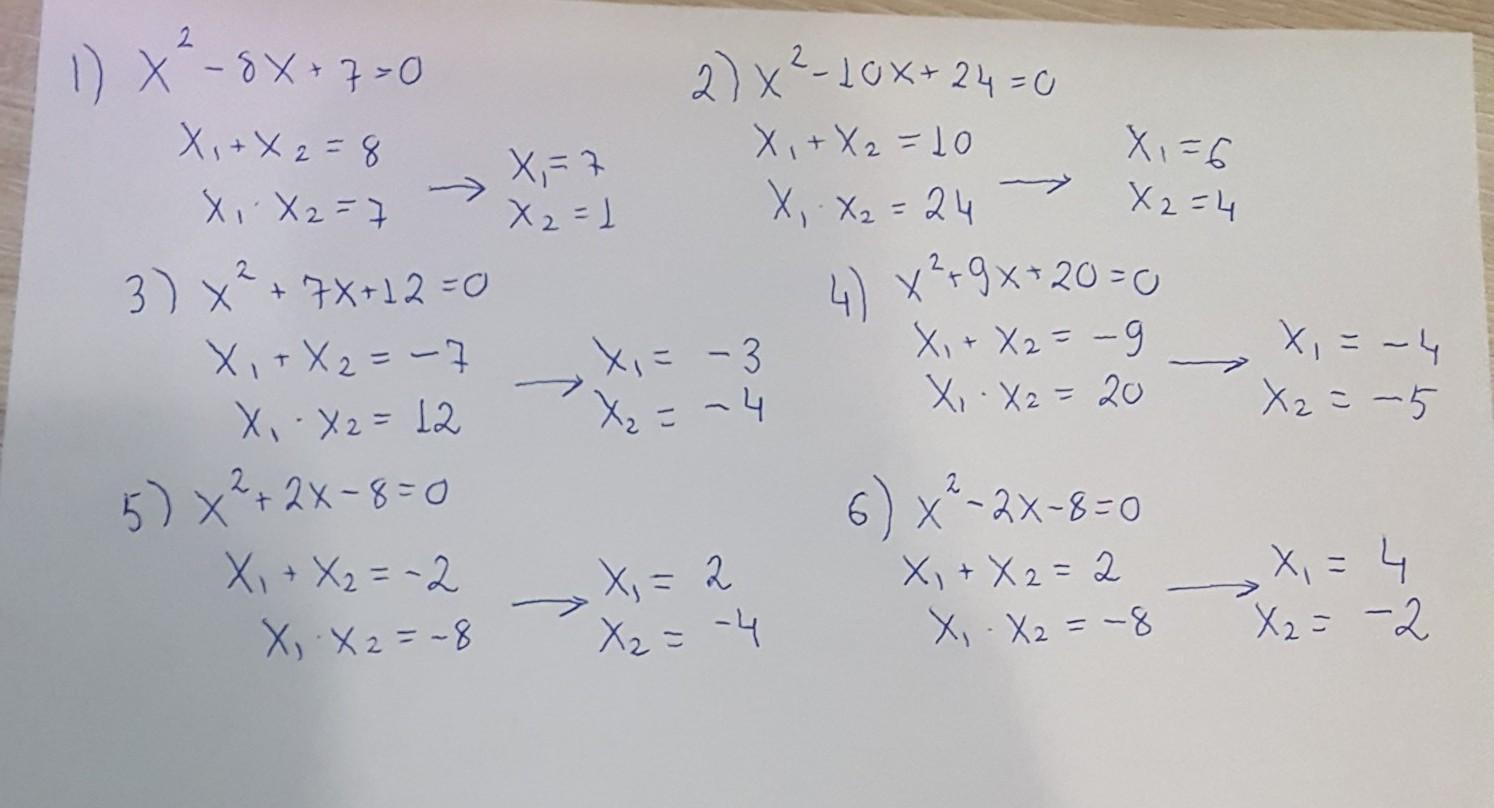 1) x² - 8x + 7 = 0
x₁ + x₂ = 8
x₁ · x₂ = 7
→
x₁ = 7
x₂ = 1
2) x² - 10x + 24 = 0
x₁ + x₂ = 10
x₁ · x₂ = 24
→
x₁ = 6
x₂ = 4
3) x² + 7x + 12 = 0
x₁ + x₂ = -7
x₁ · x₂ = 12
→
x₁ = -3
x₂ = -4
4) x² + 9x + 20 = 0
x₁ + x₂ = -9
x₁ · x₂ = 20
→
x₁ = -4
x₂ = -5
5) x² + 2x - 8 = 0
x₁ + x₂ = -2
x₁ · x₂ = -8
→
x₁ = 2
x₂ = -4
6) x² - 2x - 8 = 0
x₁ + x₂ = 2
x₁ · x₂ = -8
→
x₁ = 4
x₂ = -2